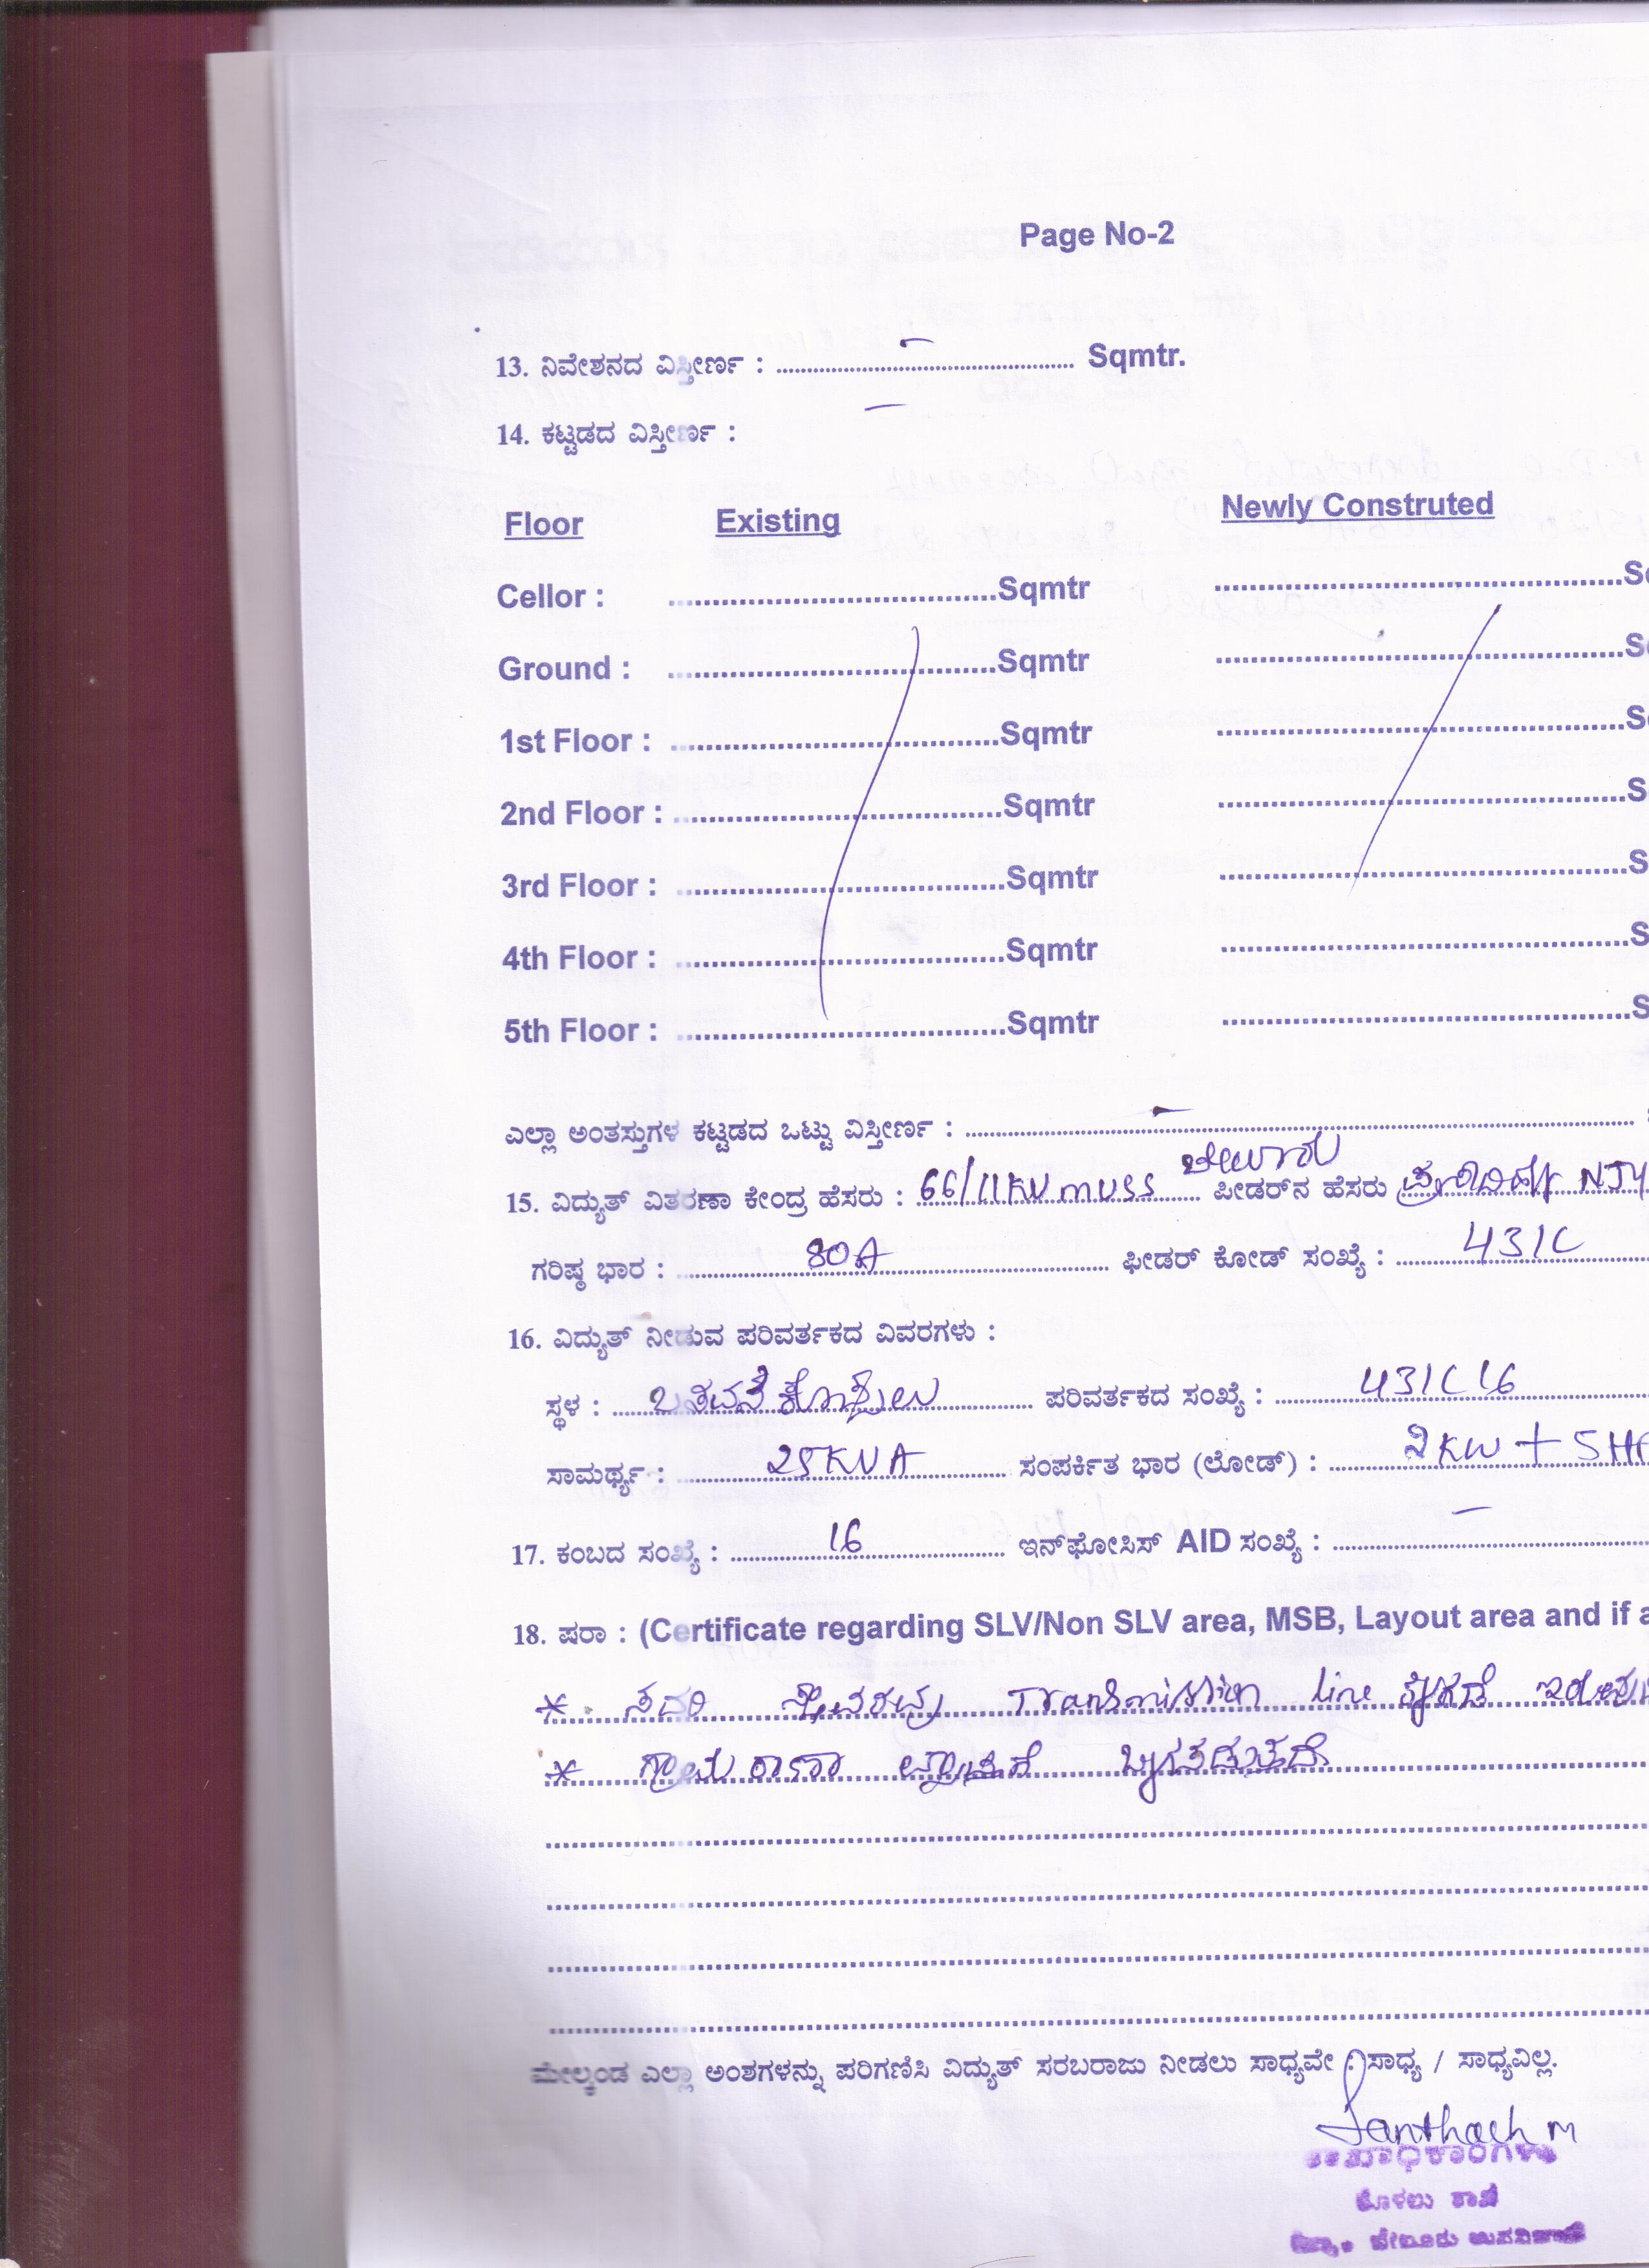 Page No-2
13. ನಿವೇಶನದ ವಿಸ್ತೀರ್ಣ : ........ – ........ Sqmtr.
14. ಕಟ್ಟಡದ ವಿಸ್ತೀರ್ಣ : –
Floor Existing Newly Construted
Cellor : ................Sqmtr ................
Ground : ................Sqmtr ................
1st Floor : ................Sqmtr ................
2nd Floor : ................Sqmtr ................
3rd Floor : ................Sqmtr ................
4th Floor : ................Sqmtr ................
5th Floor : ................Sqmtr ................
ಎಲ್ಲಾ ಅಂತಸ್ತುಗಳ ಕಟ್ಟಡದ ಒಟ್ಟು ವಿಸ್ತೀರ್ಣ : ........ – ........
15. ವಿದ್ಯುತ್ ವಿತರಣಾ ಕೇಂದ್ರ ಹೆಸರು : 66/11KV MUSS ಬೇಲೂರು ಪೀಡರ್‌ನ ಹೆಸರು NJY
ಗರಿಷ್ಠ ಭಾರ : 80A ಫೀಡರ್ ಕೋಡ್ ಸಂಖ್ಯೆ : 431C
16. ವಿದ್ಯುತ್ ನೀಡುವ ಪರಿವರ್ತಕದ ವಿವರಗಳು :
ಸ್ಥಳ : ........ ಪರಿವರ್ತಕದ ಸಂಖ್ಯೆ : 431C16
ಸಾಮರ್ಥ್ಯ : 25KVA ಸಂಪರ್ಕಿತ ಭಾರ (ಲೋಡ್) : 2KW + 5H
17. ಕಂಬದ ಸಂಖ್ಯೆ : 16 ಇನ್‌ಫೋಸಿಸ್ AID ಸಂಖ್ಯೆ : –
18. ಷರಾ : (Certificate regarding SLV/Non SLV area, MSB, Layout area and if
* ಸದರಿ ಸ್ಥಾವರವು Transmission line
* ಗ್ರಾಮ ಠಾಣಾ ವ್ಯಾಪ್ತಿಗೆ
ಮೇಲ್ಕಂಡ ಎಲ್ಲಾ ಅಂಶಗಳನ್ನು ಪರಿಗಣಿಸಿ ವಿದ್ಯುತ್ ಸರಬರಾಜು ನೀಡಲು ಸಾಧ್ಯವೇ : ಸಾಧ್ಯ / ಸಾಧ್ಯವಿಲ್ಲ.
Santhosh M
ಶಾಖಾಧಿಕಾರಿಗಳು
ಶಾಖೆ
ಬೇಲೂರು ಉಪವಿಭಾಗ